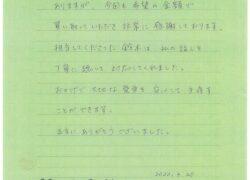 ありますが、今回も希望の金額で
買い取っていただき非常に感謝しております。
担当してくださった鈴木は、私の話しを
丁寧に聴いて対応してくれました。
おかげで大切な愛車を安心して手放す
ことができます。
本当にありがとうございました。